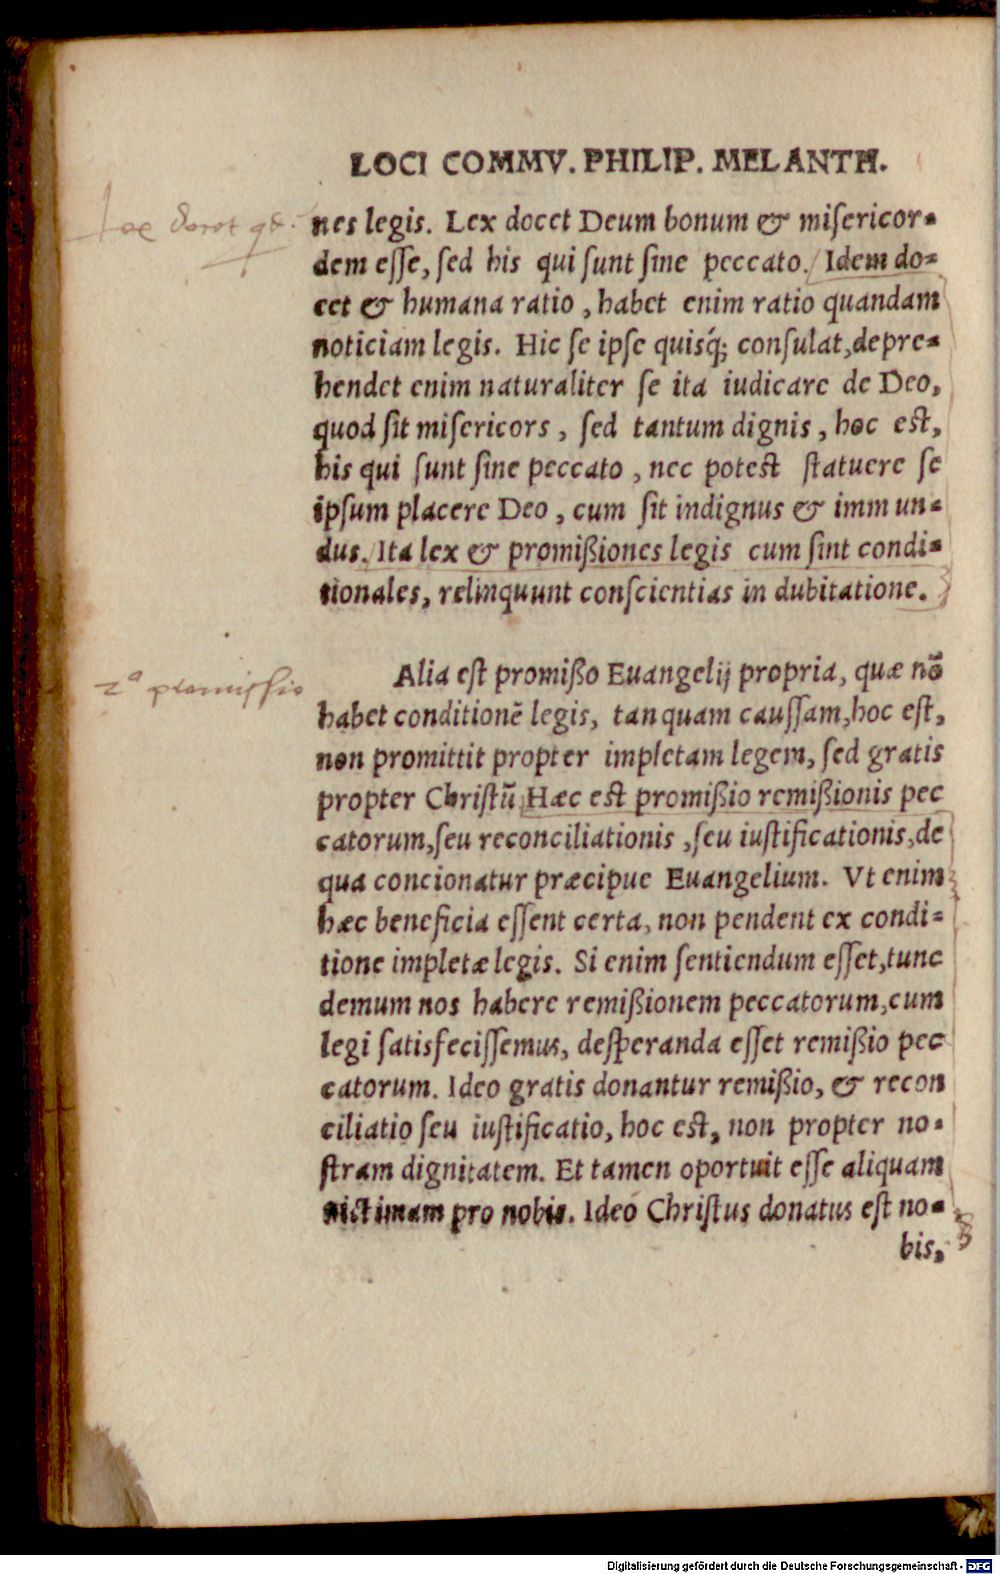 LOCI COMMV. PHILIP. MELANTH.
nes legis. Lex docet Deum bonum & miſericor-
dem eſſe, ſed his qui ſunt ſine peccato. Idem do-
cet & humana ratio, habet enim ratio quandam
noticiam legis. Hic ſe ipſe quisq́; conſulat, depre-
hendet enim naturaliter ſe ita iudicare de Deo,
quod ſit miſericors, ſed tantum dignis, hoc eſt,
his qui ſunt ſine peccato, nec poteſt ſtatuere ſe
ipſum placere Deo, cum ſit indignus & immun-
dus. Ita lex & promißiones legis cum ſint condi-
tionales, relinquunt conſcientias in dubitatione.
2ª promissio
Alia eſt promißo Euangelij propria, quæ nō
habet conditionē legis, tanquam cauſſam, hoc eſt,
non promittit propter impletam legem, ſed gratis
propter Chriſtū. Hæc eſt promißio remißionis pec
catorum, ſeu reconciliationis, ſeu iuſtificationis, de
qua concionatur præcipue Euangelium. Vt enim
hæc beneficia eſſent certa, non pendent ex condi-
tione impletæ legis. Si enim ſentiendum eſſet, tunc
demum nos habere remißionem peccatorum, cum
legi ſatisfeciſſemus, deſperanda eſſet remißio pec
catorum. Ideo gratis donantur remißio, & recon
ciliatio ſeu iuſtificatio, hoc eſt, non propter no-
ſtram dignitatem. Et tamen oportuit eſſe aliquam
uictimam pro nobis. Ideo Chriſtus donatus eſt no-
bis,
Digitalisierung gefördert durch die Deutsche Forschungsgemeinschaft - DFG